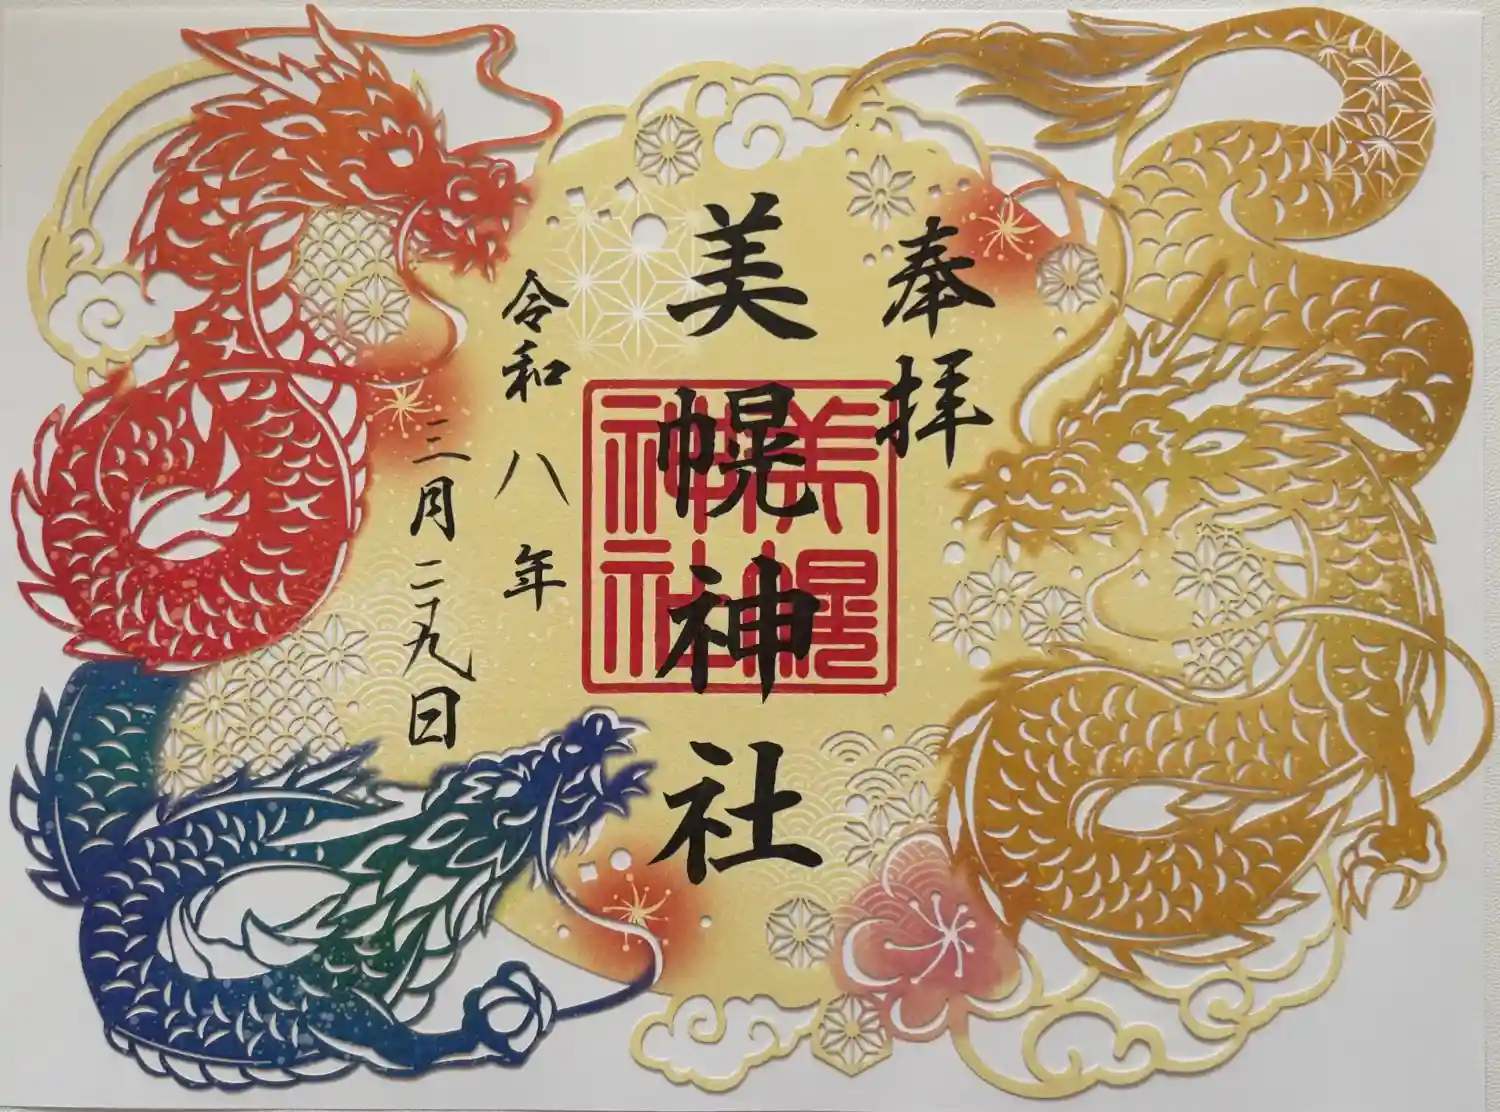 奉拝
美幌神社
美幌神社
令和八年
三月二九日